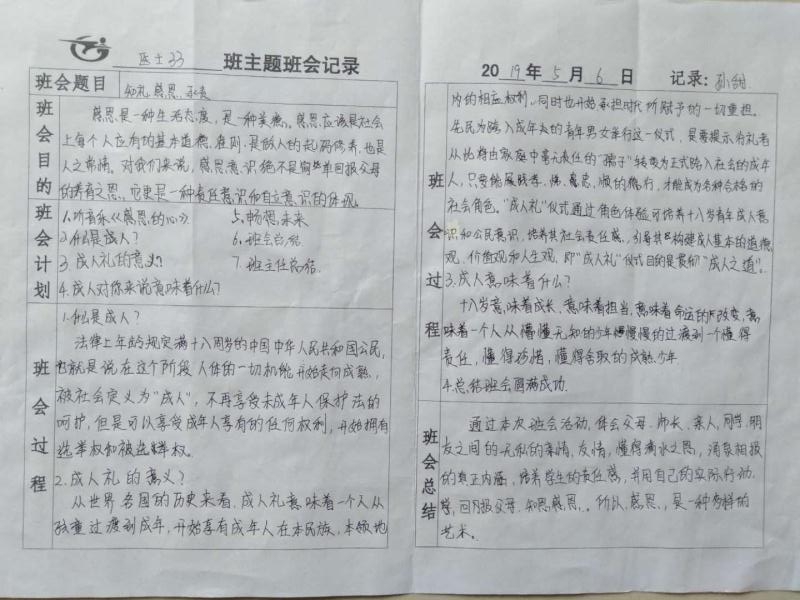 医士33 班主题班会记录
班会题目 知礼 感恩
班会目的
感恩是一种生活态度,是一种美德。感恩应该是社会
上每个人应有的基本道德准则,是做人的起码修养,也是
人之常情。对我们来说,感恩意识绝不是简单回报父母
的养育之恩,它更是一种责任意识和自立意识的体现
班会计划
1.听音乐《感恩的心》 5.畅想未来
2.什么是成人? 6.班会总结
3.成人礼的意义? 7.班主任总结
4.成人对你来说意味着什么?
班会过程
1.什么是成人?
法律上年龄规定满十八周岁的中国中华人民共和国公民,
也就是说在这个阶段人体的一切机能开始走向成熟,
被社会定义为“成人”,不再享受未成年人保护法的
呵护,但是可以享受成年人享有的任何权利,开始拥有
选举权和被选举权。
2.成人礼的意义?
从世界各国的历史来看,成人礼意味着一个人从
孩童过渡到成年,开始享有成年人在本民族,本领地
2019年5月6日 记录:孙
班会过程
内的相应权利,同时也开始承担时代所赋予的一切重担。
为跨入成年的青年男女举行这一仪式,是要提示行礼者
从此将由家庭中毫无责任的“孺子”转变为正式跨入社会的成年
人,只有能履践孝、悌、忠、顺的德行,才能成为各种合格的
社会角色。“成人礼”仪式通过角色体验可培养十八岁青年成人意
识和公民意识,培养其社会责任感,引导其构建成人基本的道德
观,价值观和人生观,即“成人礼”仪式目的是贯彻“成人之道”。
3.成人意味着什么?
十八岁意味着成长,意味着担当,意味着命运的改变,意
味着一个人从懵懂无知的少年慢慢的过渡到一个懂得
责任,懂得珍惜,懂得舍取的成熟少年
4.总结班会圆满成功.
班会总结
通过本次班会活动,体会父母.师长、亲人、同学.朋
友之间的无私的亲情,友情,懂得滴水之恩,涌泉相报
的真正内涵,培养学生的责任感,并用自己的实际行动
回报父母.知恩感恩,。所以,感恩,是一种多样的
艺术。